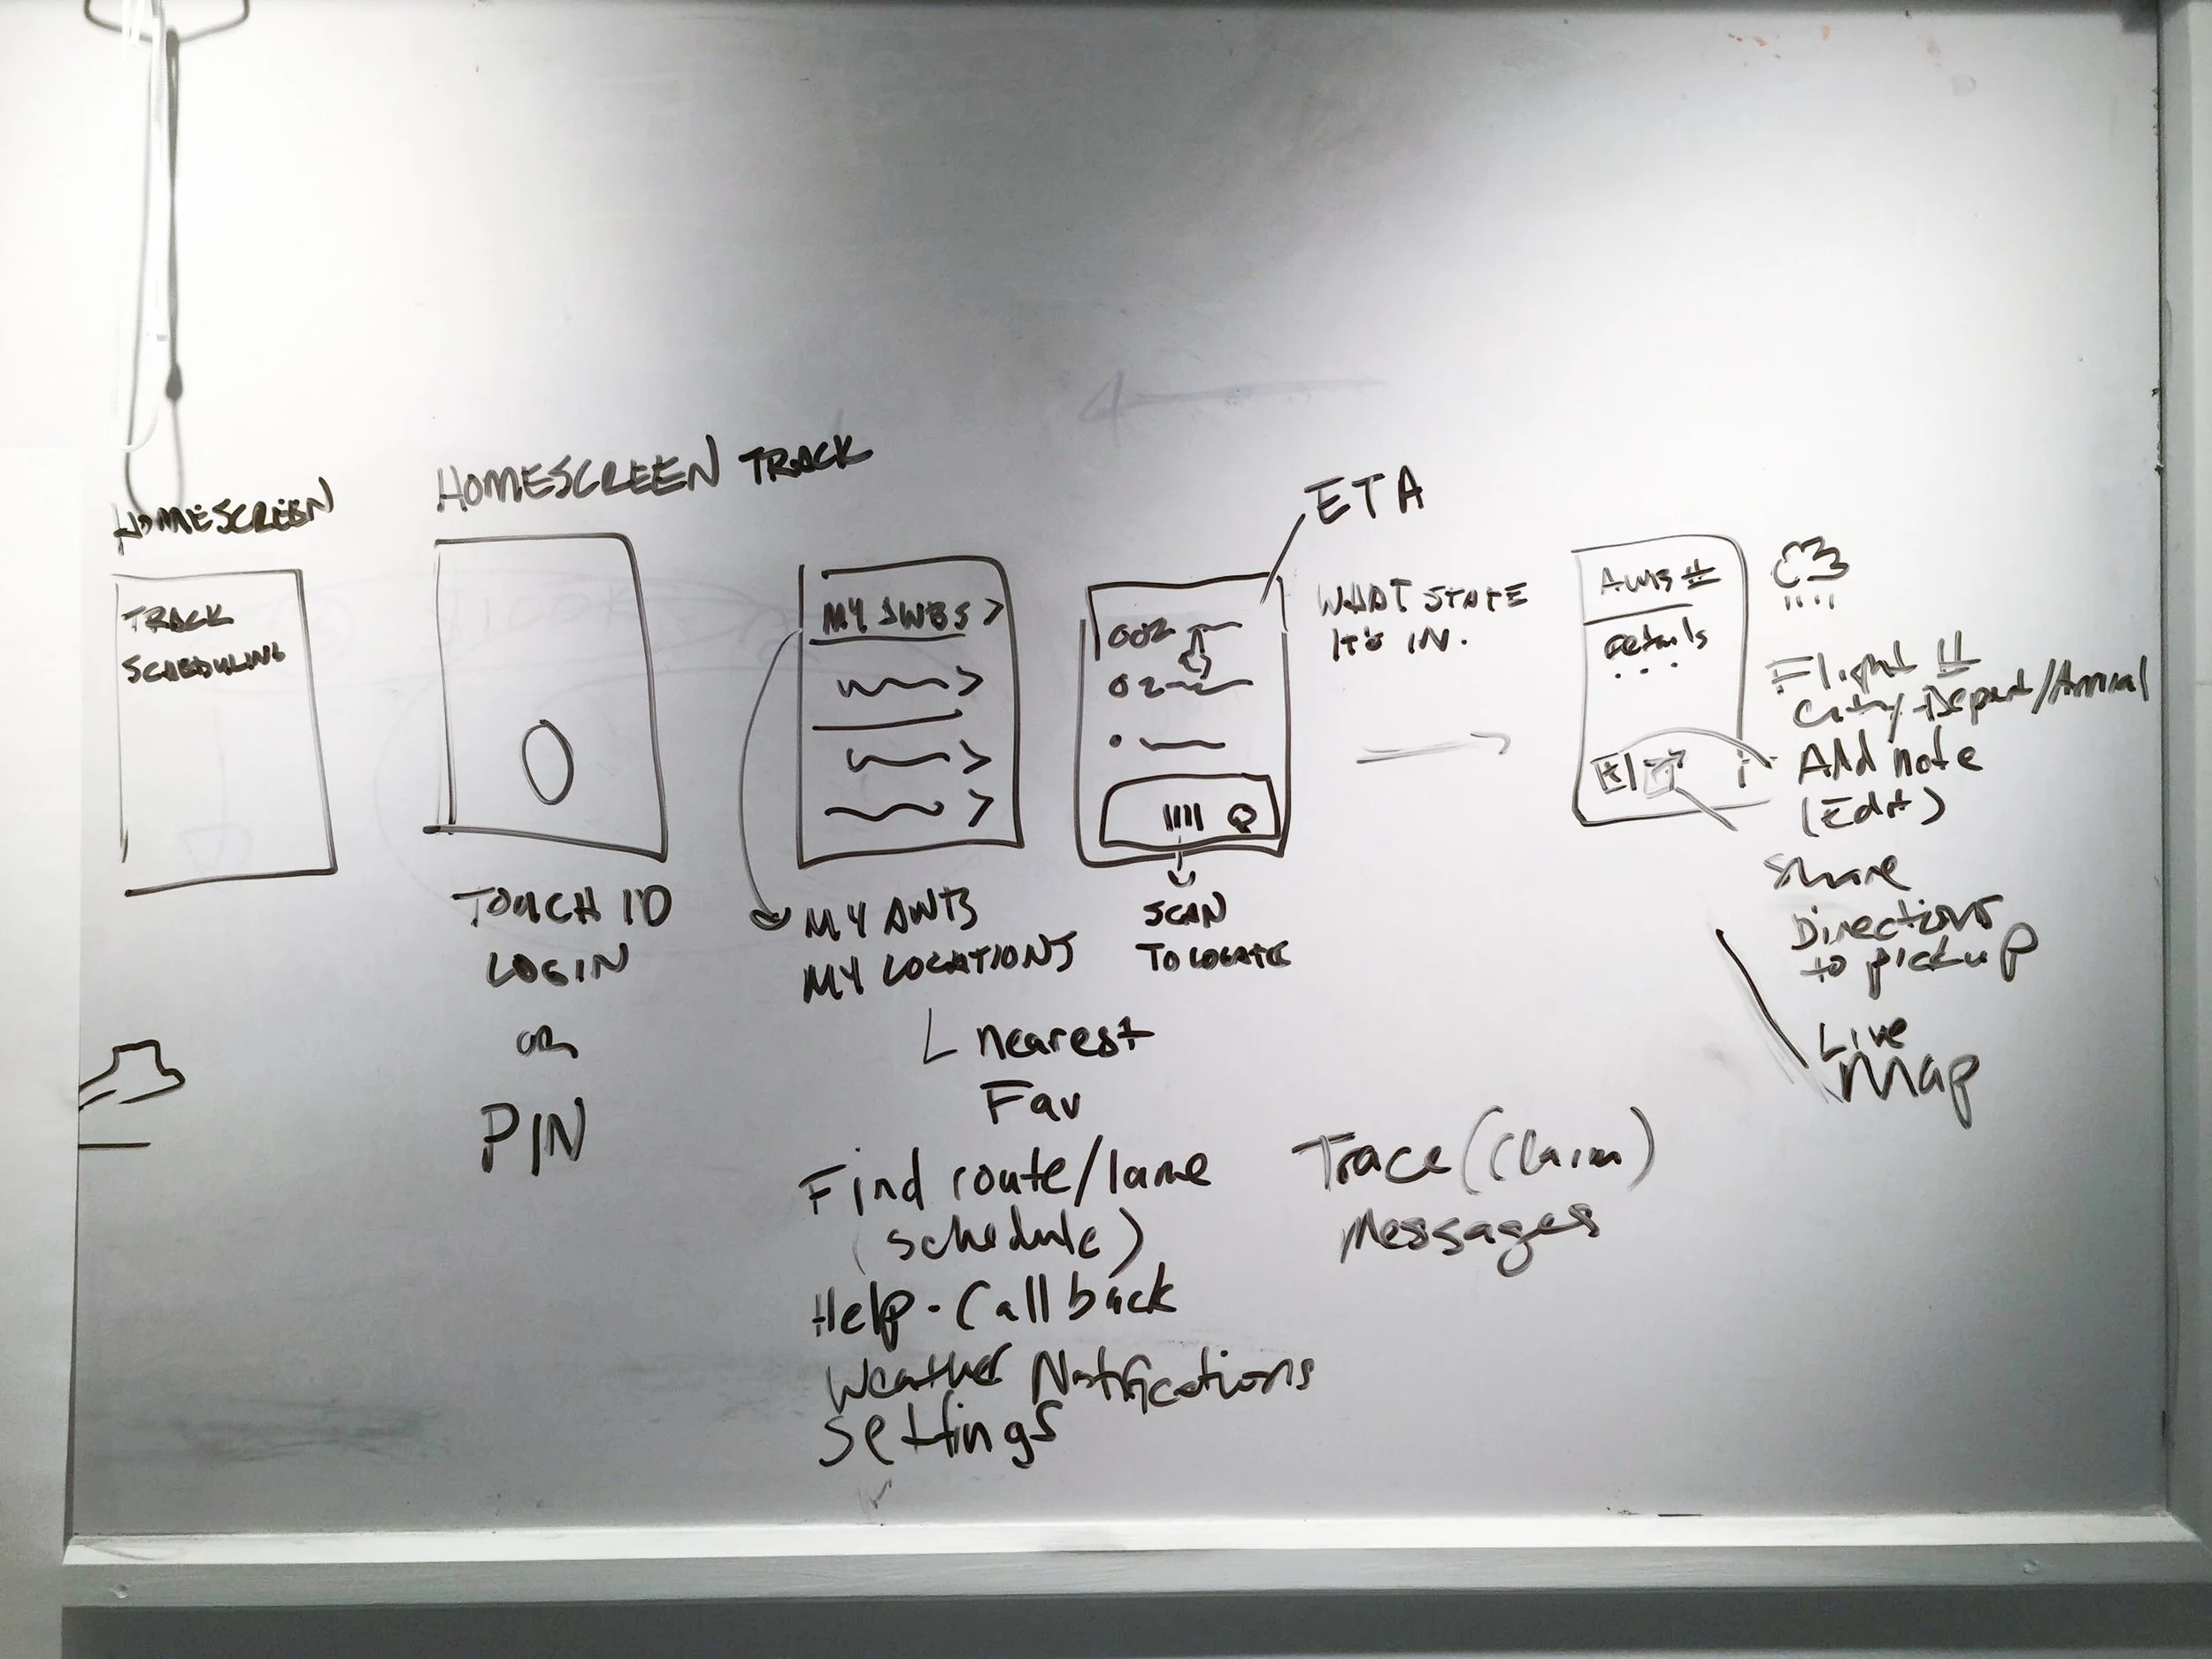 HOMESCREEN
TRACK
SCHEDULING
HOMESCREEN TRACK
TOUCH ID
LOGIN
OR
PIN
MY AWBS >
MY AWBS
MY LOCATIONS
nearest
Fav
Find route/lane
(schedule)
Help - Call back
Weather Notifications
Settings
ETA
002
02
WHAT STATE
IT'S IN.
SCAN
TO LOCATE
Trace (Claim)
Messages
AWB #
details
...
Flight #
City/Depart/Arrival
Add note
(Edit)
Share
Directions
to pickup
Live
Map